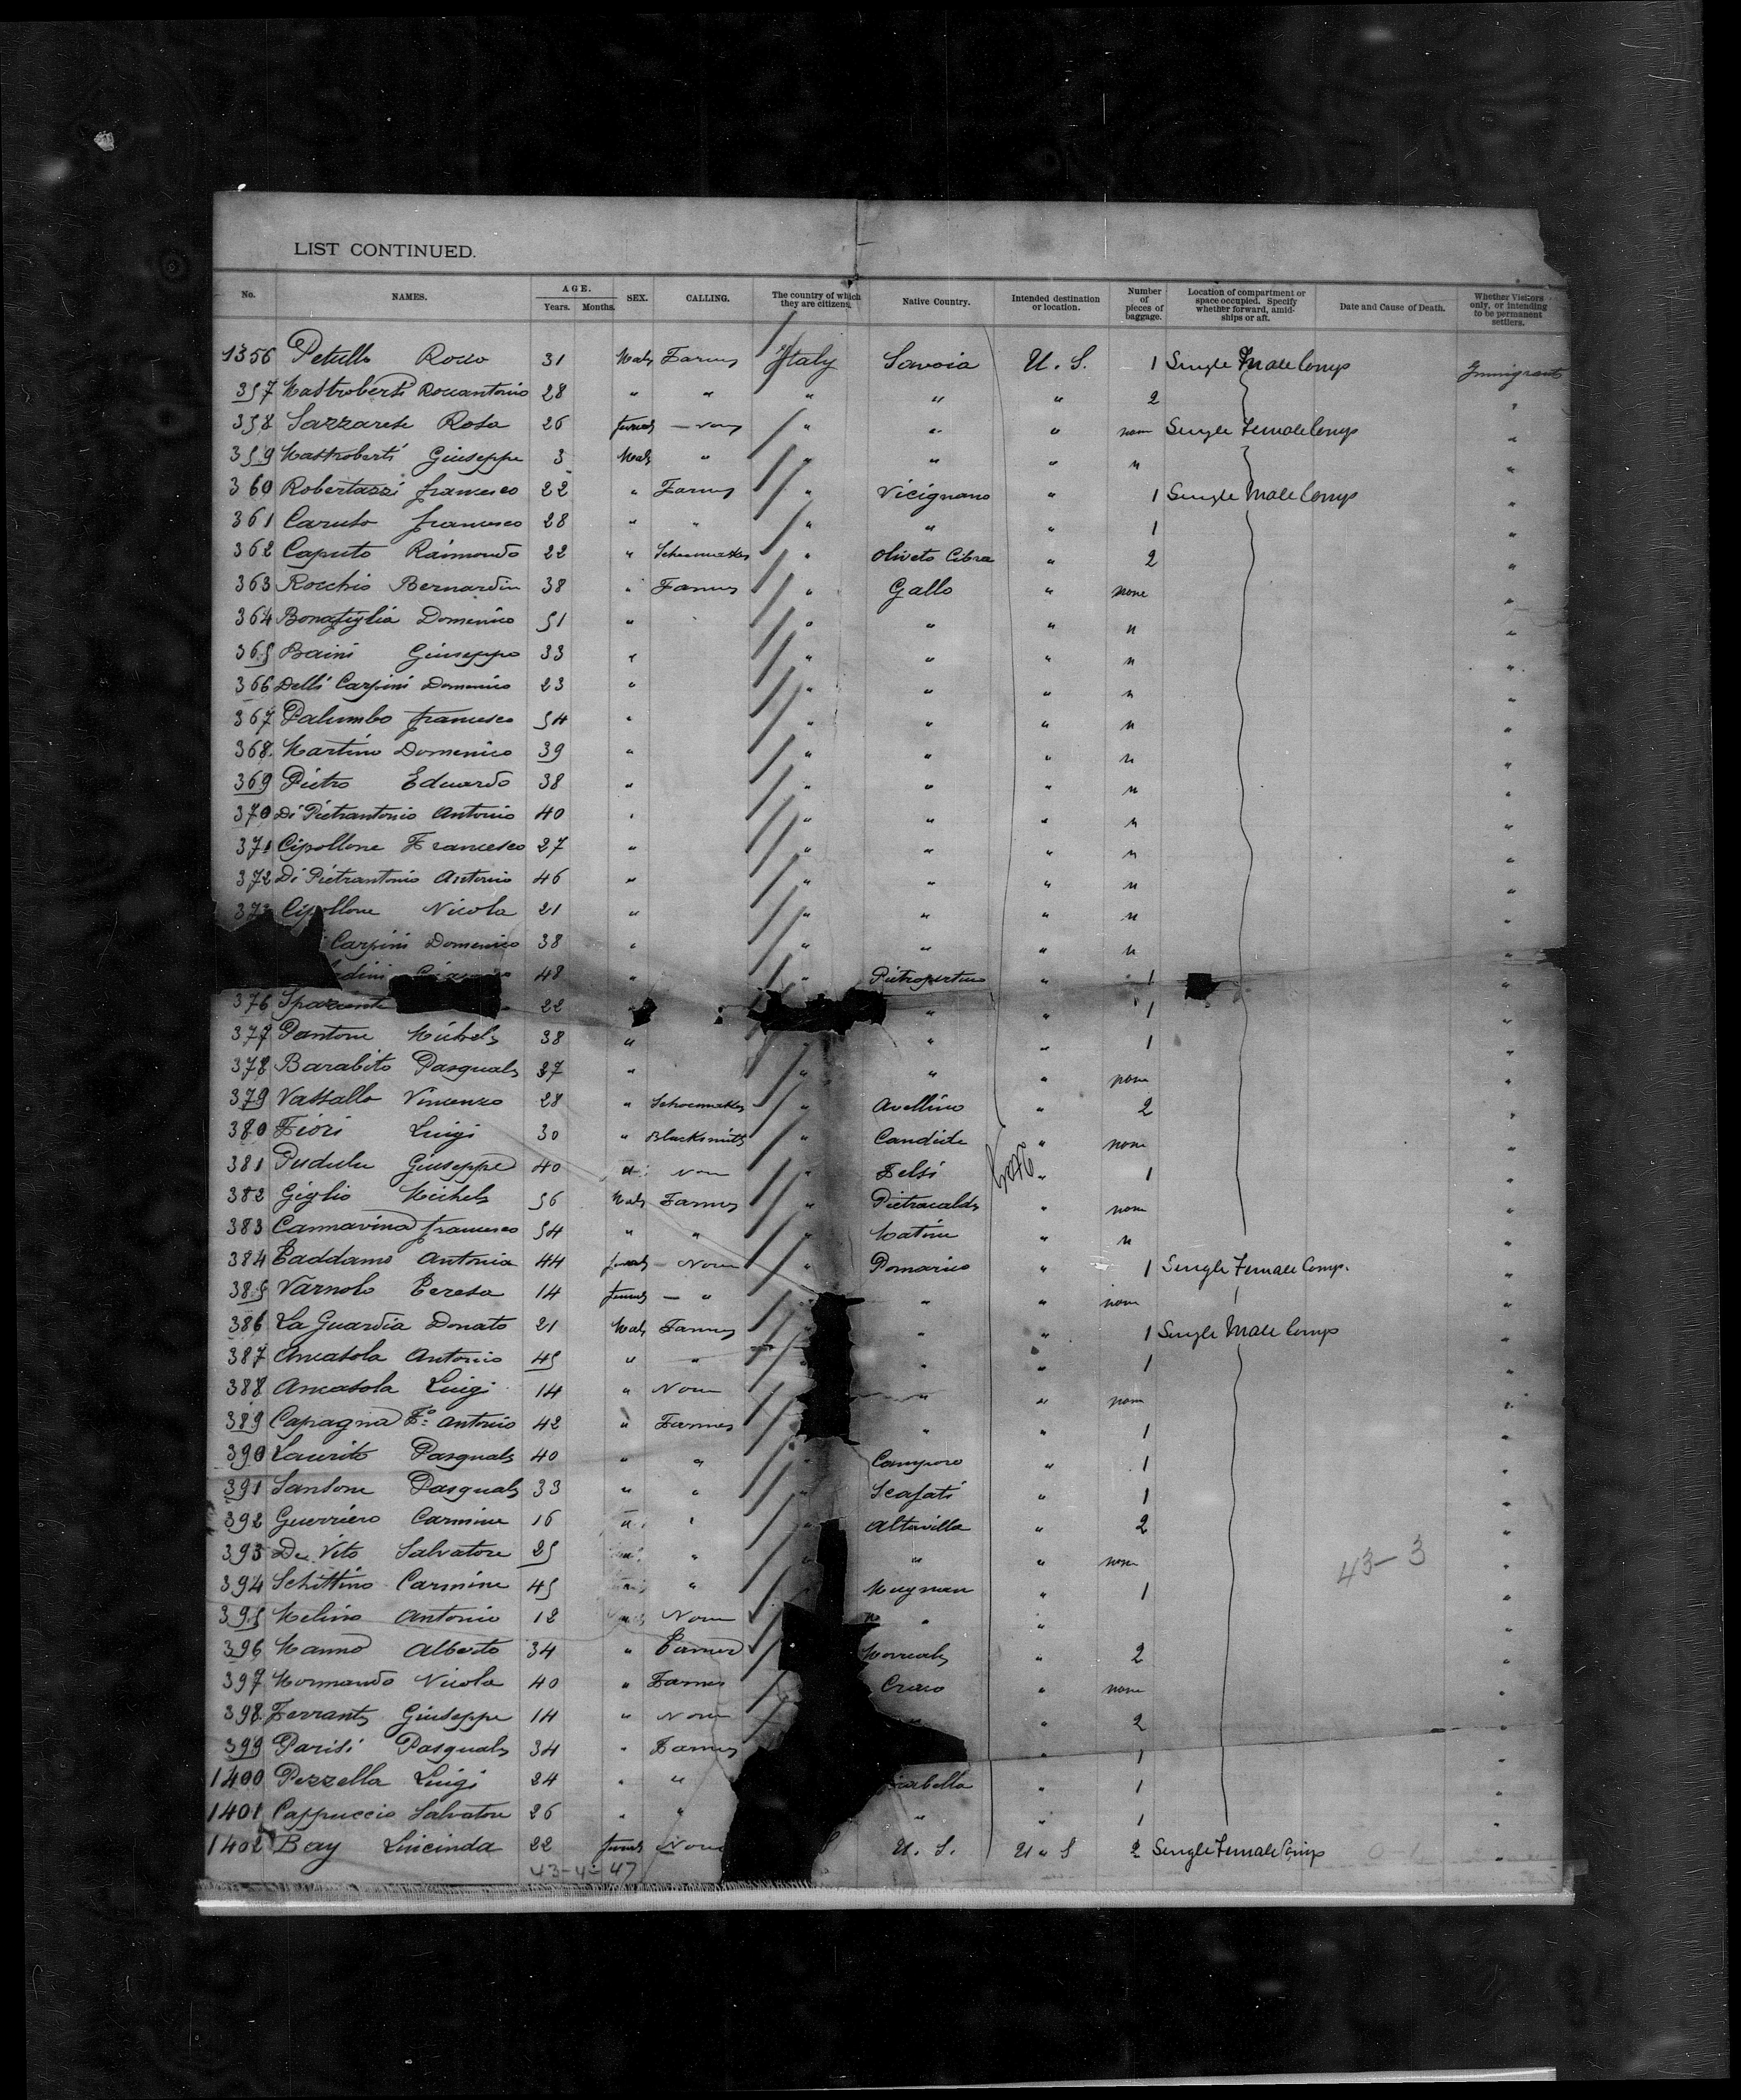 LIST CONTINUED.
No. NAMES. AGE. Years. Months. SEX. CALLING. The country of which they are citizens. Native Country. Intended destination or location. Number of pieces of baggage. Location of compartment or space occupied. Specify whether forward, amidships or aft. Date and Cause of Death. Whether Visitors only, or intending to be permanent settlers.
1356 Petullo Rocco 31 Male Farmer Italy Savoia U. S. 1 Single Male Comp Immigrant
357 Mastroberti Roccantonio 28 " " " " " 2 "
358 Sazzarese Rosa 26 female — none " " " none Single Female Comp "
359 Mastroberti Giuseppe 3 Male " " " " " "
360 Robertazzi francesco 22 " Farmer " Vicignano " 1 Single Male Comp "
361 Caruso francesco 28 " " " " " 1 "
362 Caputo Raimondo 22 " Schoemaker " Oliveto Citra " 2 "
363 Rocchio Bernardin 38 " Farmer " Gallo " none "
364 Bonafiglia Domenico 51 " " " " " "
365 Baini Giuseppe 33 " " " " " "
366 Delli Carpini Domenico 23 " " " " " "
367 Palumbo francesco 54 " " " " " "
368 Martino Domenico 39 " " " " " "
369 Pietro Eduardo 38 " " " " " "
370 Di Pietrantonio Antonio 40 " " " " " "
371 Cipollone Francesco 27 " " " " " "
372 Di Pietrantonio Antonio 46 " " " " " "
373 Cipollone Nicola 21 " " " " " "
Carpini Domenico 38 " " " " " "
48 " " Pietropertusa " 1 "
376 22 " " 1 "
377 Pantone Michele 38 " " " " 1 "
378 Barabito Pasquale 37 " " " " none "
379 Vassallo Vincenzo 28 " Schoemaker " Avellino " 2 "
380 Fiori Luigi 30 " Blacksmith " Candide " none "
381 Pudulu Giuseppe 40 " None " Felsi " 1 "
382 Giglio Michele 56 Male Farmer " Pietracalda " none "
383 Cannavina francesco 54 " " Matine " " "
384 Taddamo Antonia 44 female — None " Pomarico " 1 Single Female Comp. "
385 Varnolo Teresa 14 female — " " " none "
386 La Guardia Donato 21 Male Farmer " " 1 Single Male Comp "
387 Ancasola Antonio 45 " " " " 1 "
388 Ancasola Luigi 14 " None " " none "
389 Capagna Fo. Antonio 42 " Farmer " " 1 "
390 Laurito Pasquale 40 " " Camporo " 1 "
391 Santone Pasquale 33 " " " Scafati " 1 "
392 Guerriero Carmine 16 " " " Altavilla " 2 "
393 De Vito Salvatore 25 " " " " none 43-3 "
394 Schittino Carmine 45 " Mugnan " 1 "
395 Melino Antonio 12 None " " "
396 Manno Alberto 34 " Farmer Morreale " 2 "
397 Mormando Nicola 40 " Farmer Craco " none "
398 Ferrante Giuseppe 14 " None " 2 "
399 Parisi Pasquale 34 " Farmer " 1 "
1400 Pezzella Luigi 24 " " abella " 1 "
1401 Cappuccio Salvatore 26 " " " " 1 "
1402 Bay Luicinda 22 female None U. S. U " S 2 Single Female Comp "
43-4-47